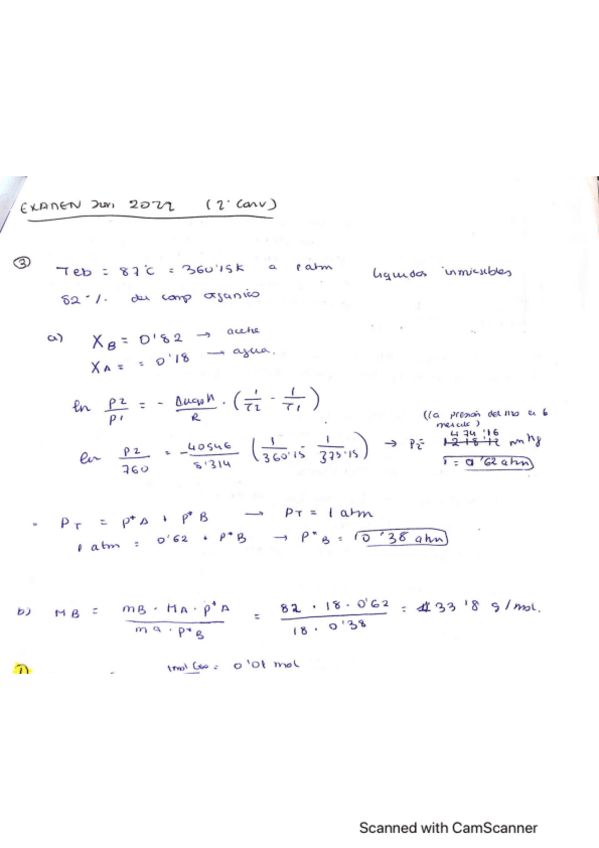 EXAMEN Jun 2022 (2ª Conv)
③ Teb = 87°C = 360'15K a 1 atm Liquidos inmiscibles
82 % del comp organico
a) XB = 0'82 → aceite
XA = = 0'18 → agua.
ln P2/P1 = - ΔvapH/R · (1/T2 - 1/T1)
((a presión del H2O en la
mezcla)
ln P2/760 = -40546/8'314 (1/360'15 - 1/373'15) → P2 = 474'16 mm Hg
1 = 0'62 atm
- PT = P*A + P*B → PT = 1 atm
1 atm = 0'62 + P*B → P*B = 0'38 atm
b) MB = mB · MA · P*A / mA · P*B = 82 · 18 · 0'62 / 18 · 0'38 = 133'8 g/mol.
1)
= 0'01 mol
Scanned with CamScanner